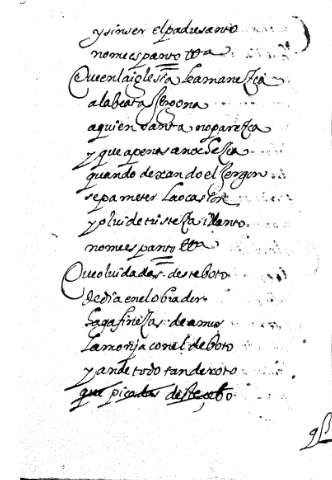 y sin ser el padre santo
nome espanto &a
Que en la iglesia lo amanezca
a la beata
a quien santa no parezca
y que apenas anochezca
quando dexando el
se pa meter la ocasion
y olvide tristeza i llanto
nome espanto &a
Que olvidadas deste boto
de dia en el
haga finezas de amor
la monja con el deboto
y ande todo tan de roto
que picadas deste